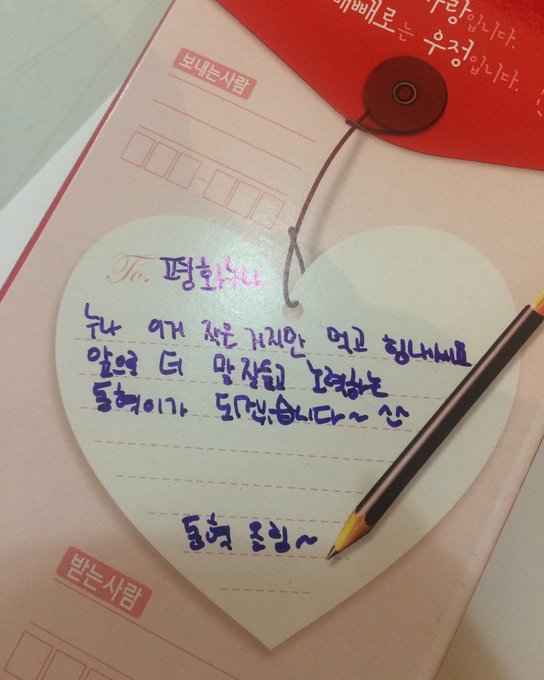 사랑입니다.
빼빼로는 우정입니다.
보내는사람
To. 평화누나
누나 이거 작은 거지만 먹고 힘내세요
앞으로 더 말 잘듣고 노력하는
동혁이가 되겠습니다~ ^^
동혁 올림~
받는사람